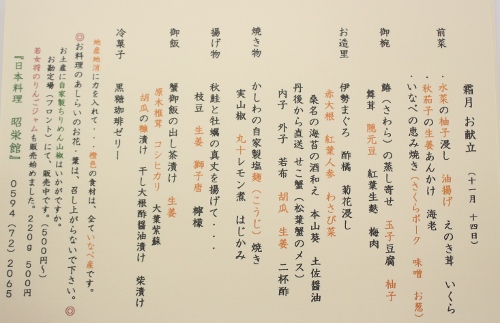 霜月 お献立 (十一月 十四日)
前菜 ・水菜の柚子浸し 油揚げ えのき茸 いくら
・秋茄子の生姜あんかけ 海老
・いなべの恵み焼き(さくらポーク 味噌 お葱)
御椀 鰆(さわら)の蒸し寄せ 玉子豆腐 柚子
舞茸 隠元豆 紅葉生麩 梅肉
お造里 伊勢まぐろ 酢橘 菊花浸し
赤大根 紅葉人参 わさび菜
桑名の海苔の酒和え 本山葵 土佐醤油
丹後から直送 せこ蟹(松葉蟹のメス)
内子 外子 若布 胡瓜 生姜 二杯酢
焼き物 かしわの自家製塩麹(こうじ)焼き
実山椒 丸十レモン煮 はじかみ
揚げ物 秋鮭と牡蠣の真丈を揚げて・・・
枝豆 生姜 獅子唐 檸檬
御飯 蟹御飯の出し茶漬け 生姜
原木椎茸 コンヒカリ 大葉紫蘇
胡瓜の麹漬け 干し大根酢醤油漬け 柴漬け
冷菓子 黒糖珈琲ゼリー
地産地消に力を入れて・・・橙色の食材は、全ていなべ産です。
◎お料理のあしらいのお花・葉は、召し上がらないで下さい。◎
お土産に自家製ちりめん山椒はいかがですか。
お勘定場(フロント)にて、販売中です。(500円~)
若女将のりんごジャムも販売始めました。220g 500円
『日本料理 昭栄館』 0594(72)2065